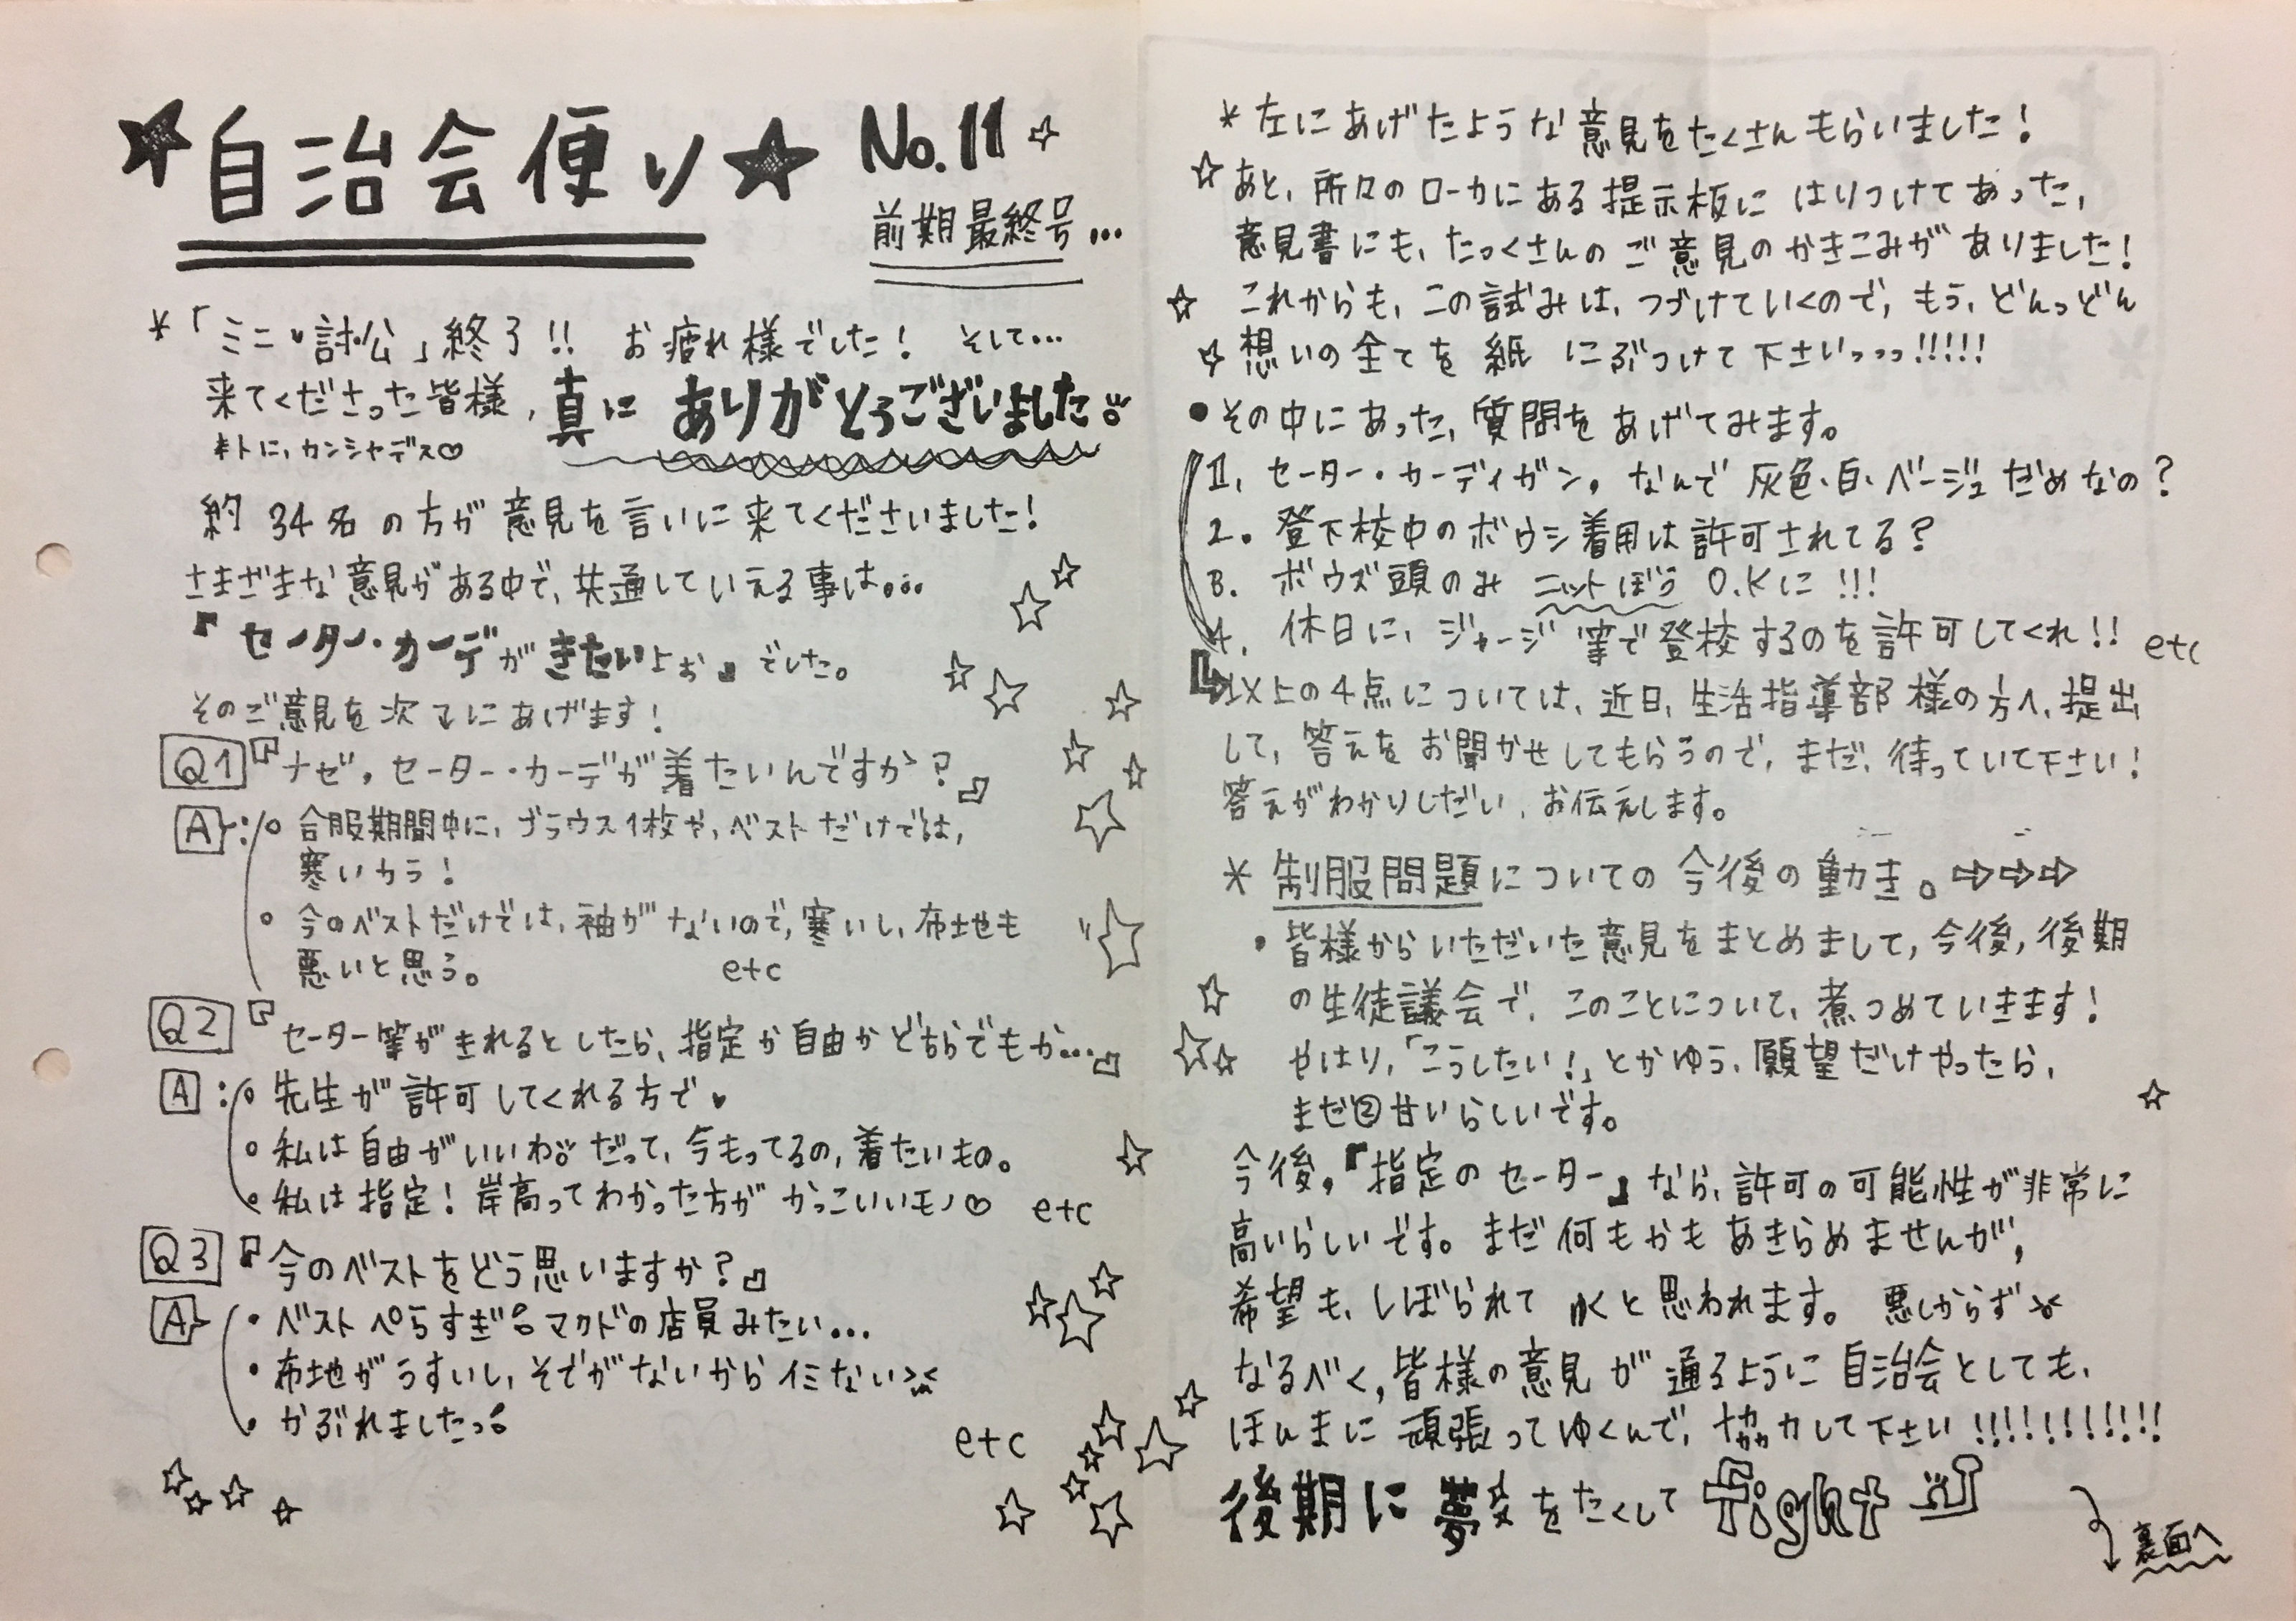 ★自治会便り★ No.11
前期最終号…
*「ミニ討公」終了!! お疲れ様でした! そして…
来てくださった皆様, 真に ありがとうございました。
ホトに、カンシャデス♡
約 34名 の方が意見を言いに来てくださいました!
さまざまな意見がある中で、共通していえる事は…
『セーター・カーデがきたいよぉ』でした。
そのご意見を次々にあげます!
Q1『ナゼ、セーター・カーデが着たいんですか?』
A:○ 合服期間中に、ブラウス1枚や、ベストだけでは、
寒いカラ!
○ 今のベストだけでは、袖がないので、寒いし、布地も
悪いと思う。 etc
Q2『セーター等がきれるとしたら、指定か自由かどちらでもか…』
A:○ 先生が許可してくれる方で♥
○ 私は自由がいいわ。だって、今もってるの、着たいもの。
● 私は指定! 岸高ってわかった方が かっこいいモノ♡ etc
Q3『今のベストをどう思いますか?』
A ・ベスト ペらすぎ。マクドの店員みたい…
・布地がうすいし、そでがないから イミない><
・かぶれましたっ。
etc
*左にあげたような意見をたくさんもらいました!
☆あと、所々のローカにある提示板に はりつけてあった、
意見書にも、たっくさんのご意見のかきこみがありました!
☆ これからも、この試みは、つづけていくので、もう、どんっどん
☆想いの全てを 紙 にぶつけて下さいっっっ!!!!!
●その中にあった、質問をあげてみます。
1. セーター・カーディガン。なんで 灰色、白、ベージュ だめなの?
2. 登下校中のボウシ着用は許可されてる?
3. ボウズ頭のみ ニットぼう O.Kに!!!
4. 休日に、ジャージ等で登校するのを許可してくれ!! etc
以上の4点については、近日、生活指導部様の方へ、提出
して、答えをお聞かせしてもらうので、まだ、待っていて下さい!
答えがわかりしだい、お伝えします。
*制服問題についての今後の動き。⇨⇨⇨
・皆様からいただいた意見をまとめまして、今後、後期
の生徒議会で、このことについて、煮つめていきます!
やはり、「こうしたい!」とかゆう、願望だけやったら、
まだ②甘いらしいです。
今後。『指定のセーター』なら、許可の可能性が非常に
高いらしいです。まだ何もかもあきらめませんが、
希望も、しぼられて ゆくと思われます。 悪しからず
なるべく、皆様の意見が通るように自治会としても、
ほんまに 頑張ってゆくんで、協力して下さい!!!!!!!!!!
後期に 夢☆をたくして fight
裏面へ